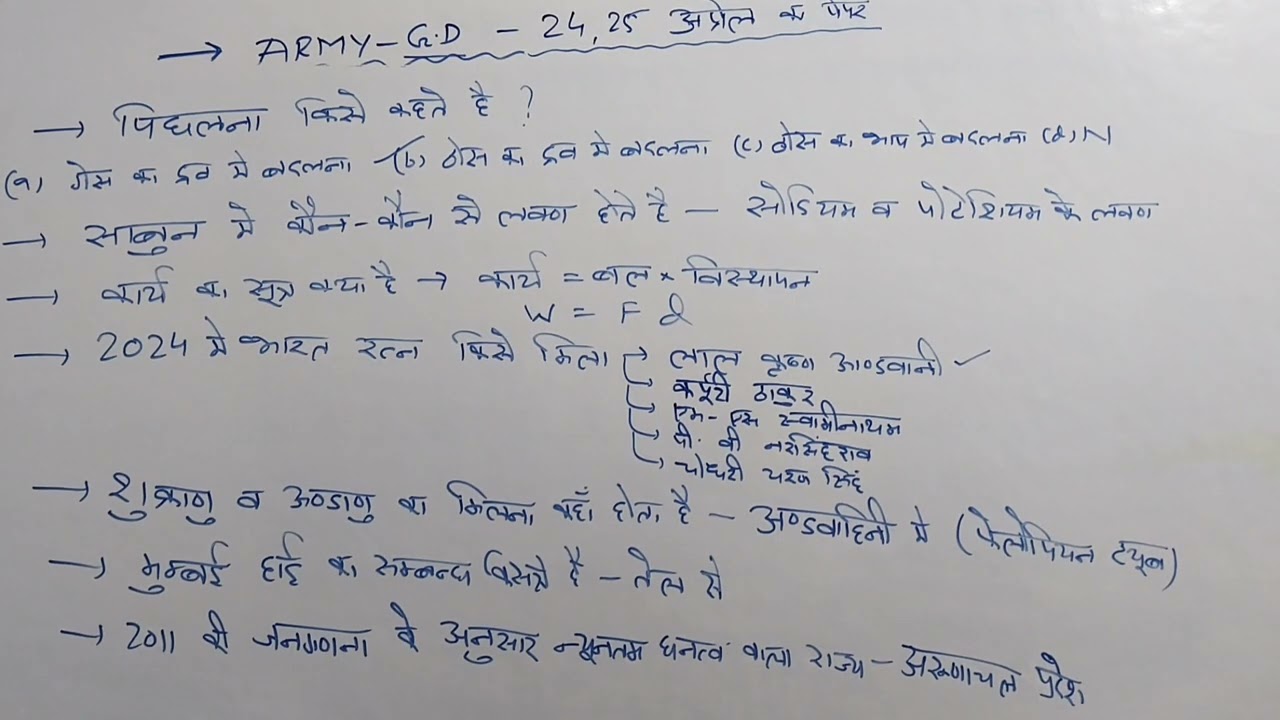 → ARMY - G.D - 24, 25 अप्रेल का पेपर
→ पिघलना किसे कहते है ?
(a) गैस का द्रव मे बदलना (b) ठोस का द्रव मे बदलना (c) ठोस का भाप मे बदलना (d) N
→ साबुन मे कौन-कौन से लवण होते है - सोडियम व पोटेशियम के लवण
→ कार्य का सूत्र क्या है → कार्य = बल × विस्थापन
W = F d
→ 2024 मे भारत रत्न किसे मिला → लाल कृष्ण आण्डवानी ✓
→ कर्पूरी ठाकुर
→ एम- एस स्वामीनाथम
→ पी. वी नरसिंहराव
→ चोधरी चरण सिंह
→ शुक्राणु व अण्डाणु का मिलना कहाँ होता है - अण्डवाहिनी मे (फेलोपियन ट्यूब)
→ मुम्बई हाई का सम्बन्ध किससे है - तेल से
→ 2011 की जनगणना के अनुसार न्यूनतम घनत्व वाला राज्य - अरूणाचल प्रदेश